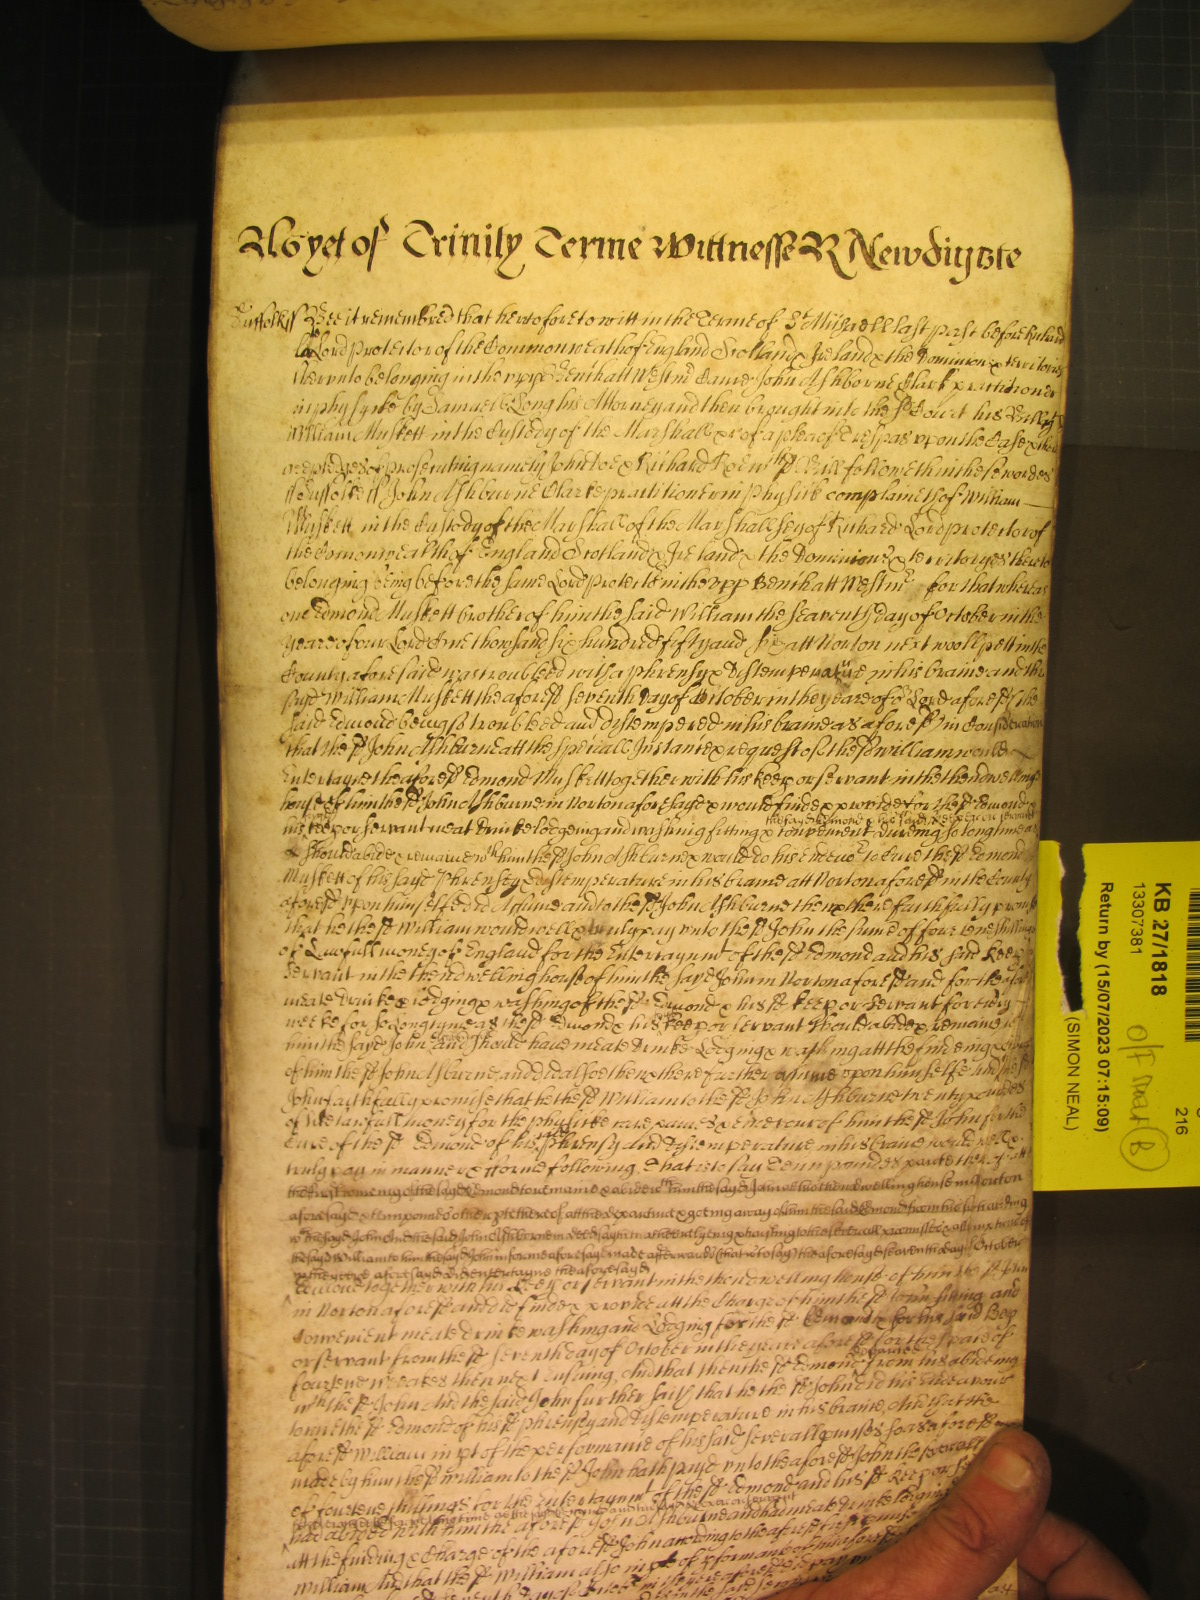 As yet of Trinity Terme Wittnesse R Newdigate
Suffolk ss Bee it remembred that heretofore to witt in the Terme of St Michaell last past before Richard
Lord Protector of the Commonwealth of England Scotland & Ireland & the Dominions & territories
thereunto belonging in the upp Bench att Westmr Came John Ashborne Clark practitioner
in physicke by Samuell Long his Attorney and then brought into the sd Court his Bill
William Muskett in the Custody of the Marshall &c of a plea of Trespas upon the Case & there
are pledges of prosecuting namely John Doe & Richard Roe wch sd Bill followeth in these wordes
ss Suffolke ss John Ashburne Clarke practitioner in Physick complaineth of William
Muskett in the Custody of the Marshall of the Marshallsey of Richard Lord protector of
the Comonwealth of England Scotland & Ireland & the Dominions & territoryes thereto
belonging being before the same Lord Protector in the upp Bench att Westmr for that whereas
one Edmond Muskett brother of him the said William the seaventh day of October in the
yeare of our Lord One thowsand six hundred fifty and att Norton next woollpett in the
County aforesaid was troubled with a phrensy & distemperature in his braine and the
sayd William Muskett the aforesd seventh day of October in the yeare of or Lord aforesd (the
said Edmond being soe troubled and distempered in his braine as aforesd) in Consideration
that the sd John Ashburne att the speciall Instance & request of the sd william would
Entertayne the aforesd Edmond Muskett together with his keeper or servant in the then dwelling
house of him the sd John Ashburne in Norton aforesayd & would finde & provide for the sd Edmond &
his keeper or servant meat drinke lodgeing and washing fitting & convenient during so long time as
the sayd Edmond & his said keeper or servant
should abide & remaine wth him the sd John Ashburne & would do his endeavor to Cure the sd Edmond
Muskett of his sayd Phrensey & distemperature in his braine att Norton aforesd in the County
aforesd upon himselfe did Assume and to the sd John Ashburne then & there faithfully promise
that he the sd William would well & truly pay unto the sd John the sum of fourtene shillings
of Lawfull money of England for the Entertaynmt of the sd Edmond and his said keeper
servant in the then dwelling house of him the sayd John in Norton aforesd and for the
meate drinke lodging & washing of the sd Edmond & his sd keeper or servant for every
weeke for so long tyme as the sd Edmond & his keeper or servant should abide & remaine
him the sayd John and should have meate drinke Lodging & washing att the findeing & charge
of him the sd John Ashburne and did also then & there further assume upon himselfe and the sd
John faithfully promise that he the sd William to the sd John Ashburne twenty pounds
of like lawfull money for the physicke care paines & endeavour of him the sd John for the
Cure of the sd Edmond of his sd Phrensy and distemperature in his braine would well &
truly pay in manner & forme following, that is to say Tenn pounds parte thereof att
the first comeing of the sayd Edmond to remaine & abide wth him the sayd John att his then dwelling house in Norton
aforesayd & tenn pounds other pte thereof att the departure & going away of him the said Edmond from his soe abiding
wth the sayd John And the said John Ashborne in deed sayth that he relying & trusting to the severall promisses & assumptions of
the sayd William to him the sayd John in forme aforesayd made afterwards (that is to say) the aforesayd seaventh day of October
in the yeere aforesayd did entertayne the aforesayd
Edmond together with his keeper or servant in the then dwelling house of him the sd John
in Norton aforesd and did finde & provide att the Charge of him the sd John fitting and
Convenient meate drinke washing and Lodging for the sd Edmond & for his said keeper
or servant from the sd seventh day of October in the yeare aforesd for the space of
fourtene weekes then next Ensuing, And that then the sd Edmond departed from his abideing
wth the sd John And the said John further saith that he the sd John did his Endeavour
to cure the sd Edmond of his sd phrensy and distemperature in his braine, And that the
aforesd William in pt of the performance of his said severall promises soe as aforesd
made by him the sd William to the sd John hath payd unto the aforesd John the severall
of fourtene shillings for the Entertaynmt of the sd Edmond and his sd keeper or
for every weeke for so long time as the sayd Edmond and the sayd keeper or servant
had abided with him the aforesd John Ashburne and had meate drinke lodging
att the finding & Charge of the aforesd John according to the aforesd first promise
William And that the sd William also in pt of pformance of his aforesd
KB 27/1818
13307381
Return by (15/07/2023 07:15:09)
(SIMON NEAL)
216